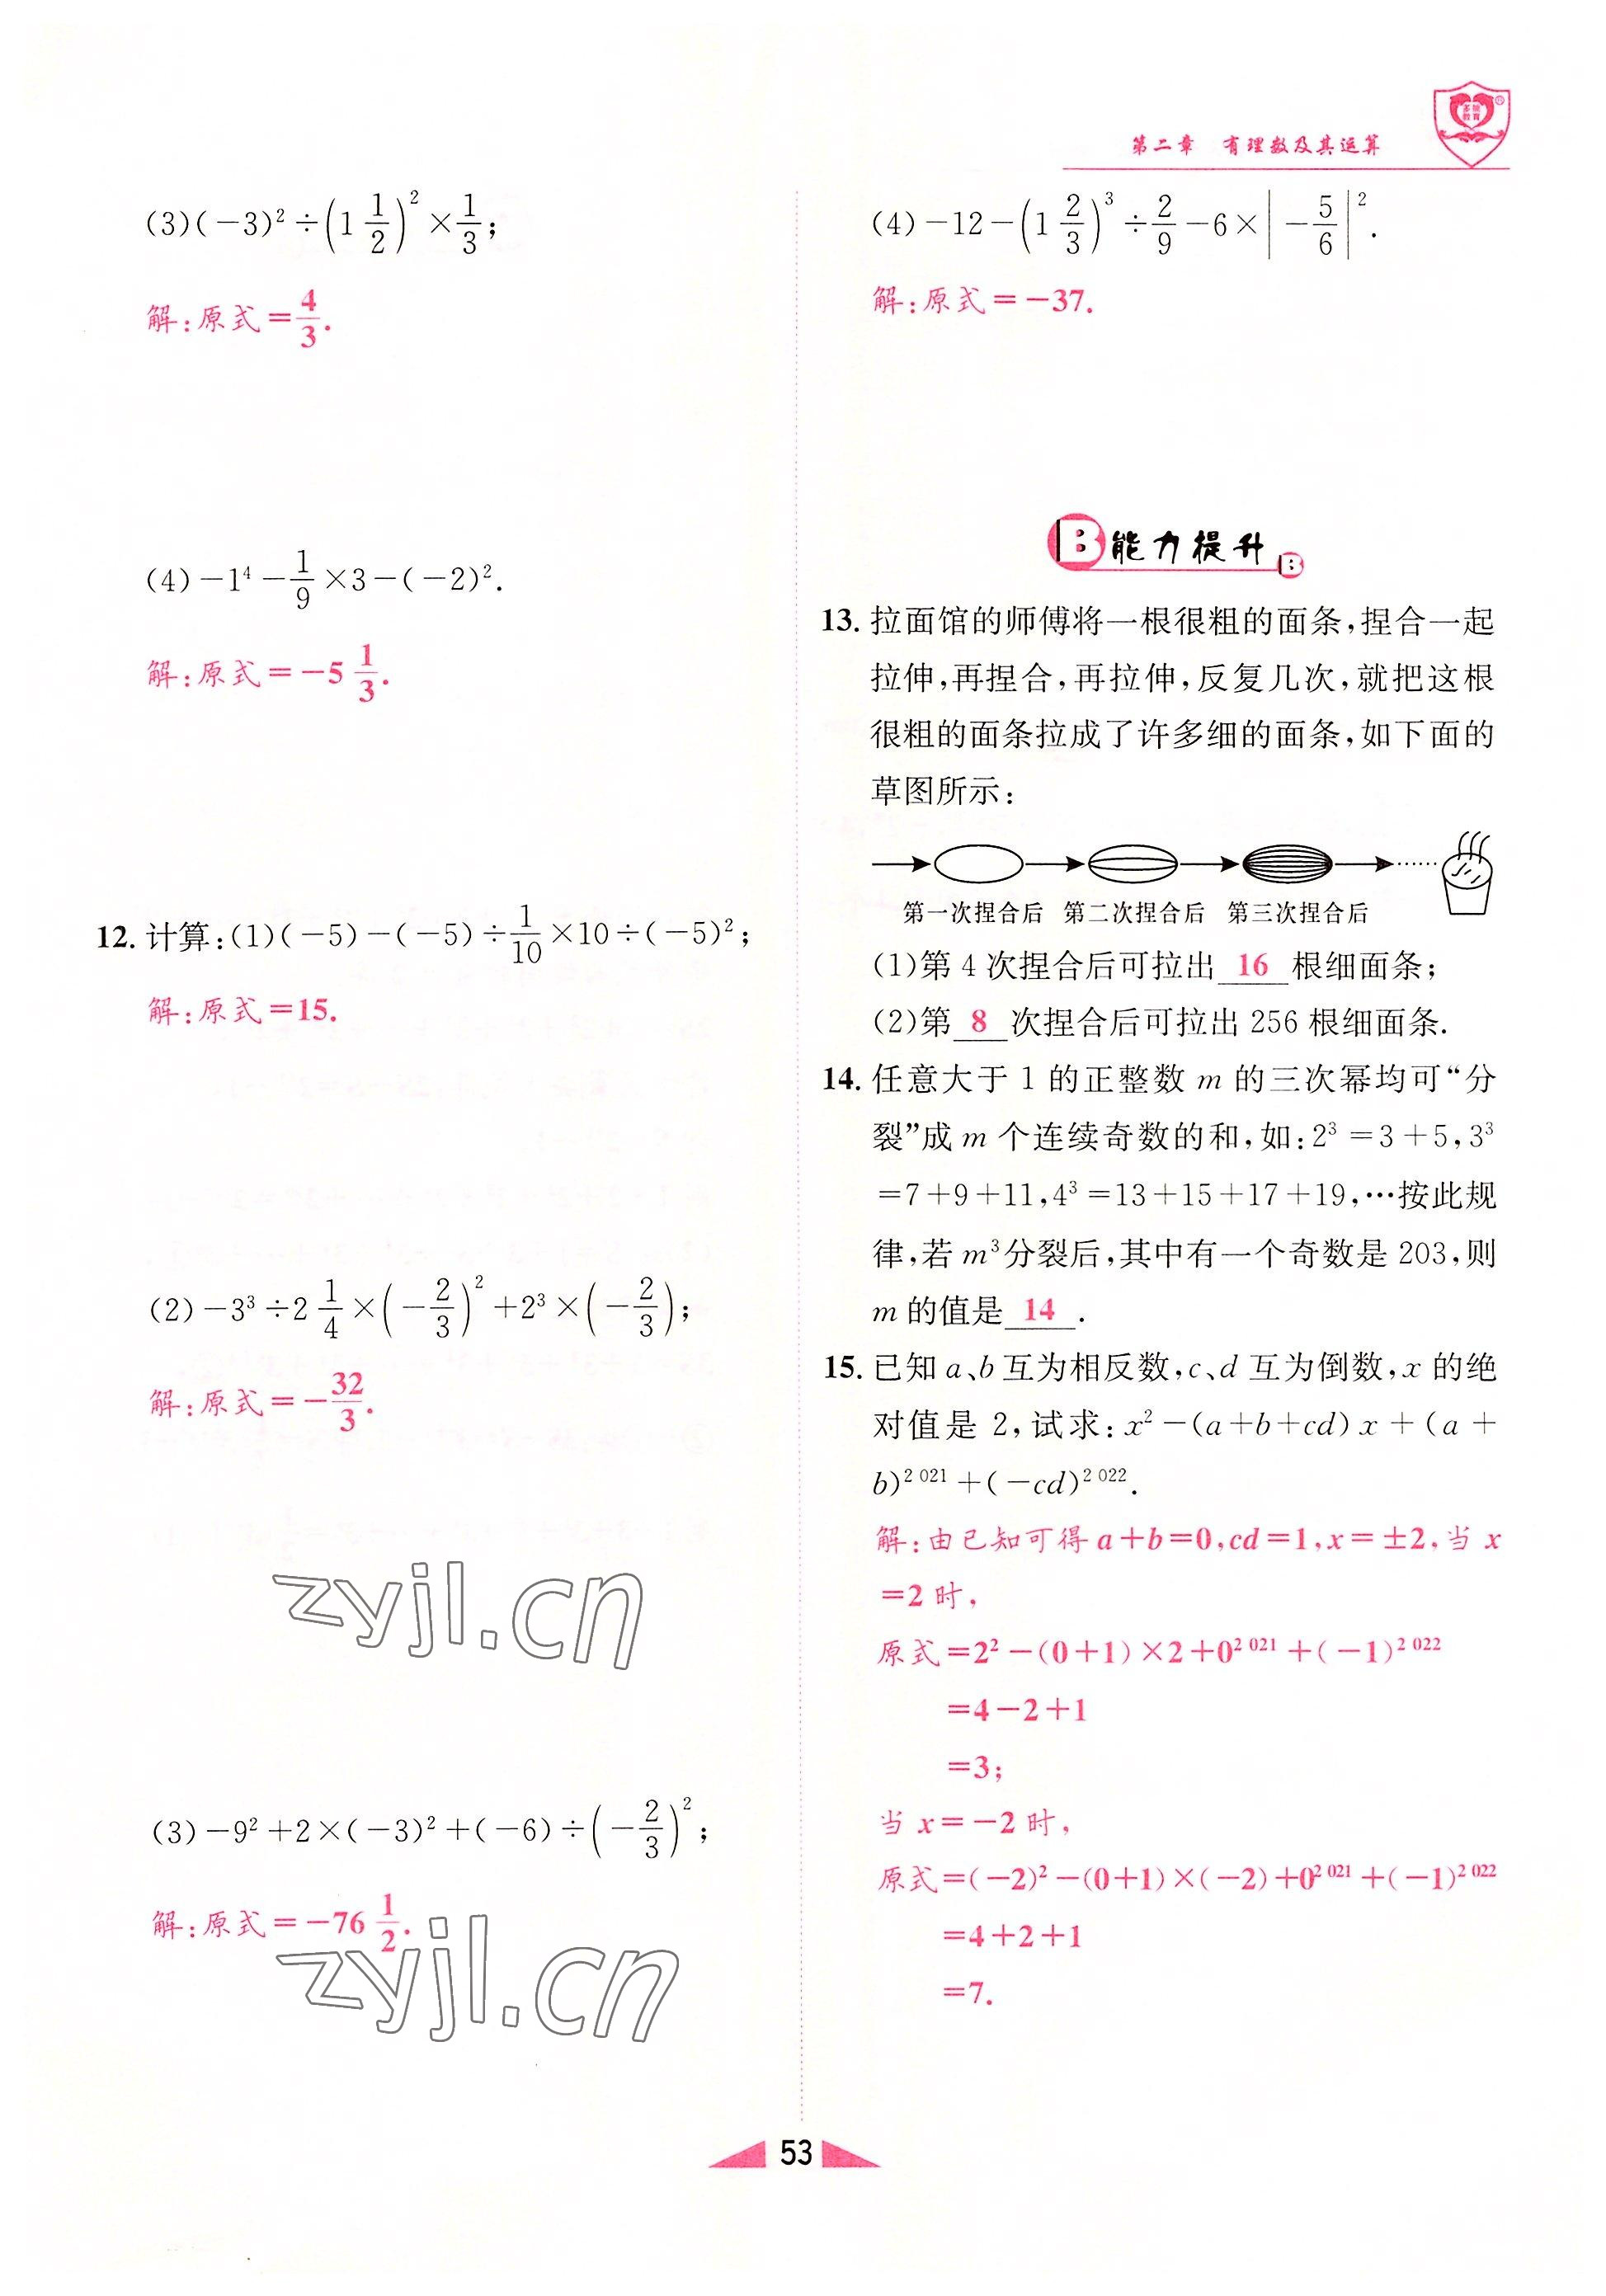 第二章 有理数及其运算
(3)(-3)²÷(1 1/2)²×1/3;
解:原式=4/3.
(4)-1⁴-1/9×3-(-2)².
解:原式=-5 1/3.
12. 计算:(1)(-5)-(-5)÷1/10×10÷(-5)²;
解:原式=15.
(2)-3³÷2 1/4×(-2/3)²+2³×(-2/3);
解:原式=-32/3.
(3)-9²+2×(-3)²+(-6)÷(-2/3)²;
解:原式=-76 1/2.
(4)-12-(1 2/3)³÷2/9-6×|-5/6|².
解:原式=-37.
B 能力提升 B
13. 拉面馆的师傅将一根很粗的面条,捏合一起
拉伸,再捏合,再拉伸,反复几次,就把这根
很粗的面条拉成了许多细的面条,如下面的
草图所示:
第一次捏合后 第二次捏合后 第三次捏合后
(1)第 4 次捏合后可拉出 16 根细面条;
(2)第 8 次捏合后可拉出 256 根细面条.
14. 任意大于 1 的正整数 m 的三次幂均可“分
裂”成 m 个连续奇数的和,如:2³=3+5,3³
=7+9+11,4³=13+15+17+19,…按此规
律,若 m³分裂后,其中有一个奇数是 203,则
m 的值是 14 .
15. 已知 a、b 互为相反数,c、d 互为倒数,x 的绝
对值是 2,试求:x²-(a+b+cd)x+(a+
b)²⁰²¹+(-cd)²⁰²².
解:由已知可得 a+b=0,cd=1,x=±2,当 x
=2 时,
原式=2²-(0+1)×2+0²⁰²¹+(-1)²⁰²²
=4-2+1
=3;
当 x=-2 时,
原式=(-2)²-(0+1)×(-2)+0²⁰²¹+(-1)²⁰²²
=4+2+1
=7.
zyjl.cn
zyjl.cn
53